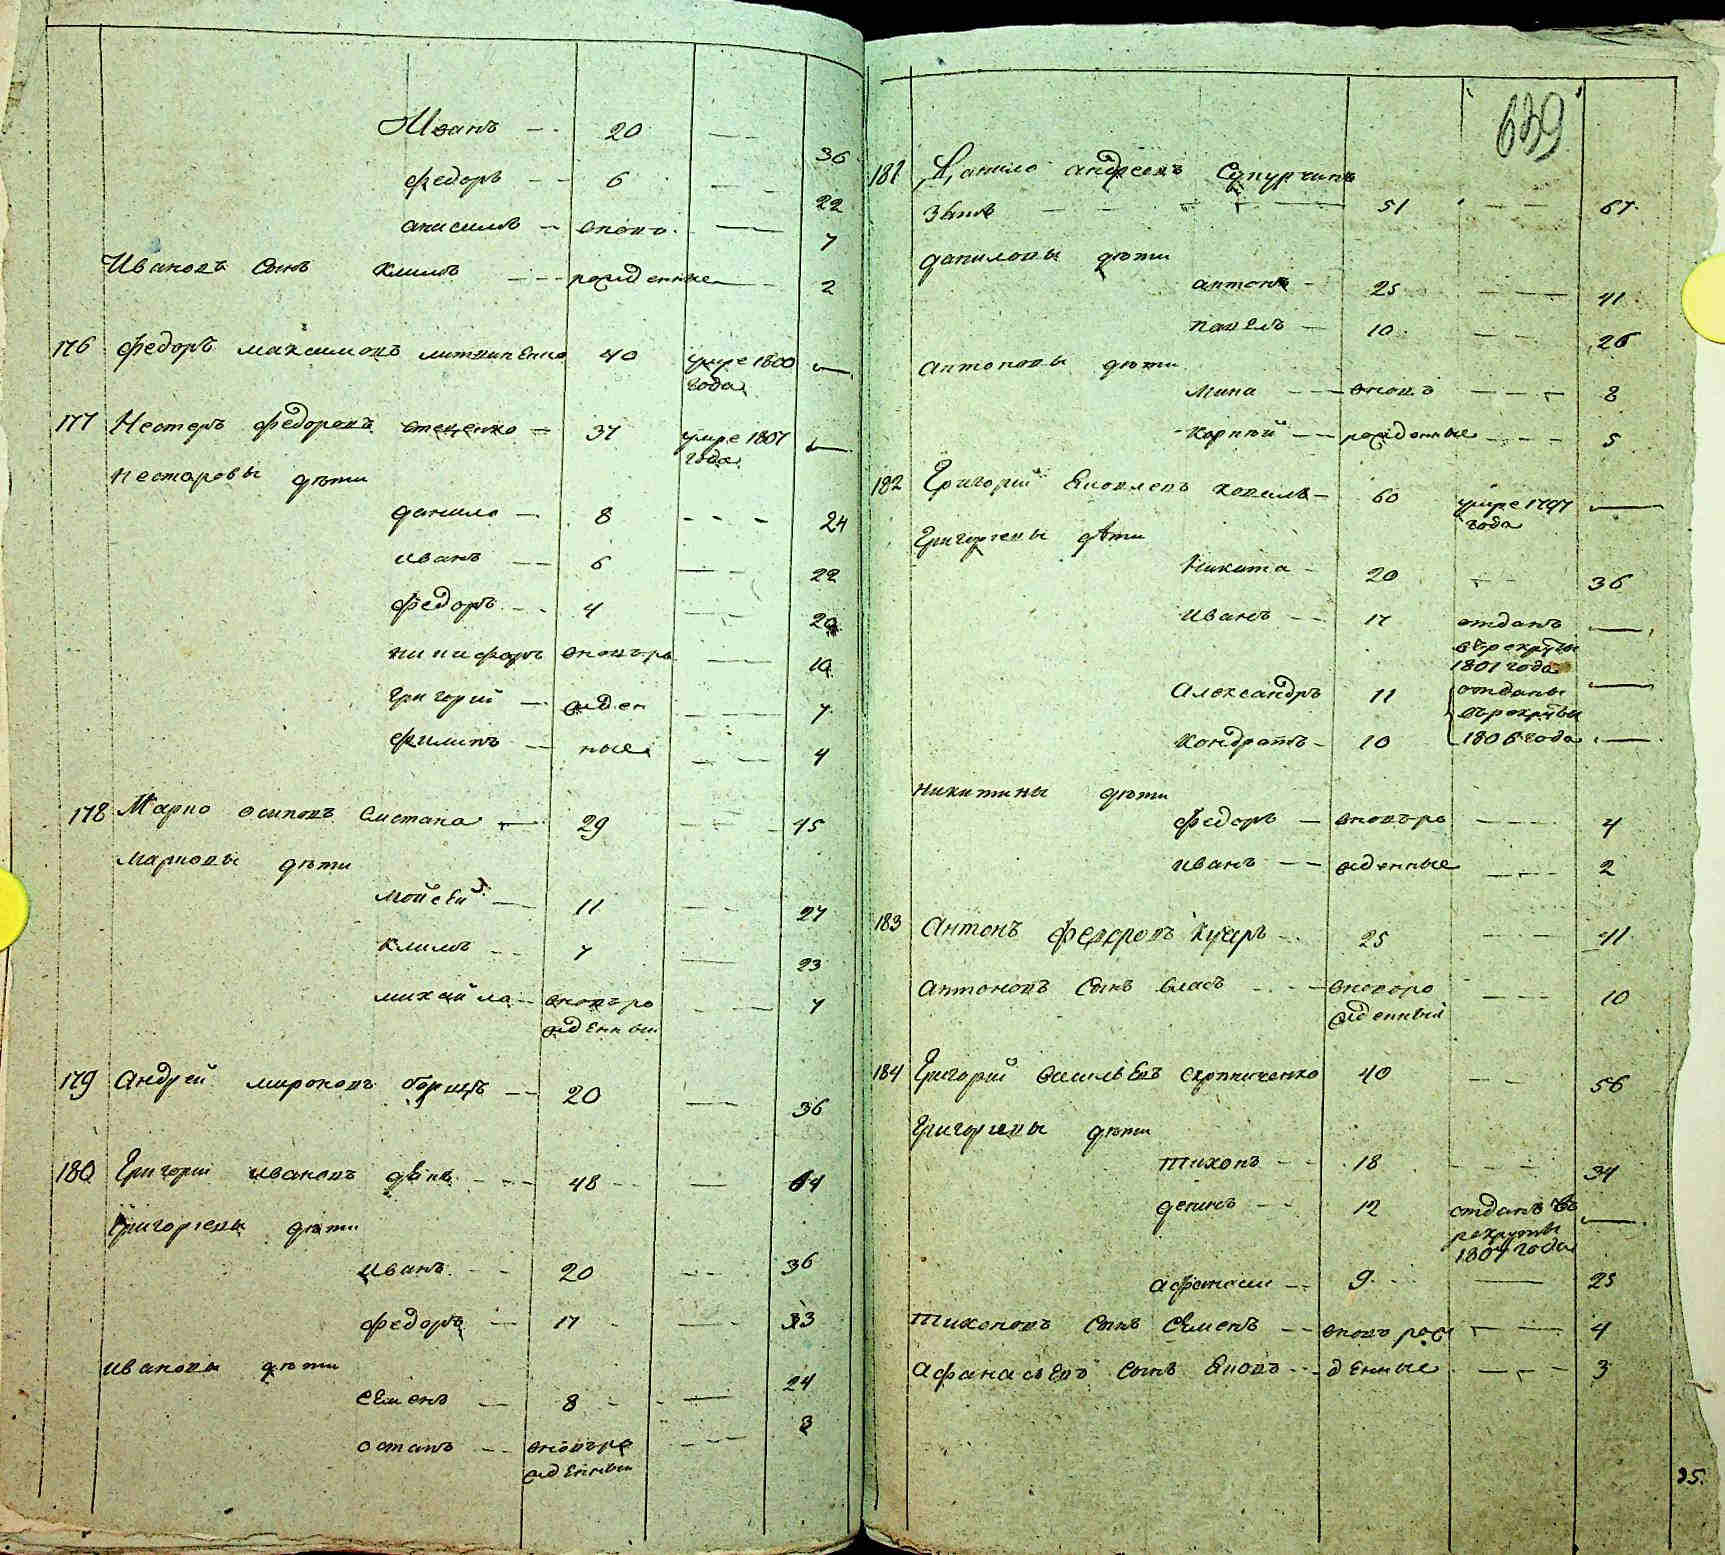 Иванъ — 20 — 36
Федоръ — 6 — 22
анисимъ — вновъ — 7
Ивановъ Сынъ Климъ — рожденные — 2
176 Федоръ максимовъ литвиненко 40 умре 1800 года —
177 Нестеръ Федоровъ стеценко — 37 умре 1807 года —
Нестеровы дѣти
данило — 8 — 24
иванъ — 6 — 22
Федоръ — 4 — 20
никифоръ вновъро — 10
григорий — жден — 7
Филипъ — ные — 4
178 Марко осиповъ Сметана — 29 — 45
марковы дѣти
мойсей — 11 — 27
климъ — 7 — 23
михайла — вновъро жденный — 7
179 андрей мироновъ борщъ — 20 — 36
180 Григорий ивановъ — 48 — 64
Григориевы дѣти
иванъ — 20 — 36
Федоръ — 17 — 33
ивановы дѣти
Семенъ — 8 — 24
остапъ — вновъро жденный — 3
639
181 Данило андреевъ
Зять — 51 — 67
даниловы дѣти
антонъ — 25 — 41
павелъ — 10 — 26
антоновы дѣти
мина — вновъ — 8
корний — рожденные — 5
182 Григорий Яковлевъ ковиль — 60 умре 1797 года —
Григориевы дѣти
Никита — 20 — 36
иванъ — 17 отданъ въ рекруты 1801 года —
Александръ 11 отданы —
въ рекруты
Кондратъ — 10 1806 года —
никитины дѣти
Федоръ — вновъро — 4
иванъ — жденные — 2
183 Антонъ Федоровъ — 25 — 41
антоновъ Сынъ власъ — вноворо жденный — 10
184 Григорий васильевъ скрипниченко 40 — 56
Григориевы дѣти
тихонъ — 18 — 34
денисъ — 12 отданъ въ рекруты 1807 года —
афанасий — 9 — 25
тихоновъ Сынъ Семенъ — вновъ рож — 4
афанасьевъ Сынъ Яковъ — денные — 3